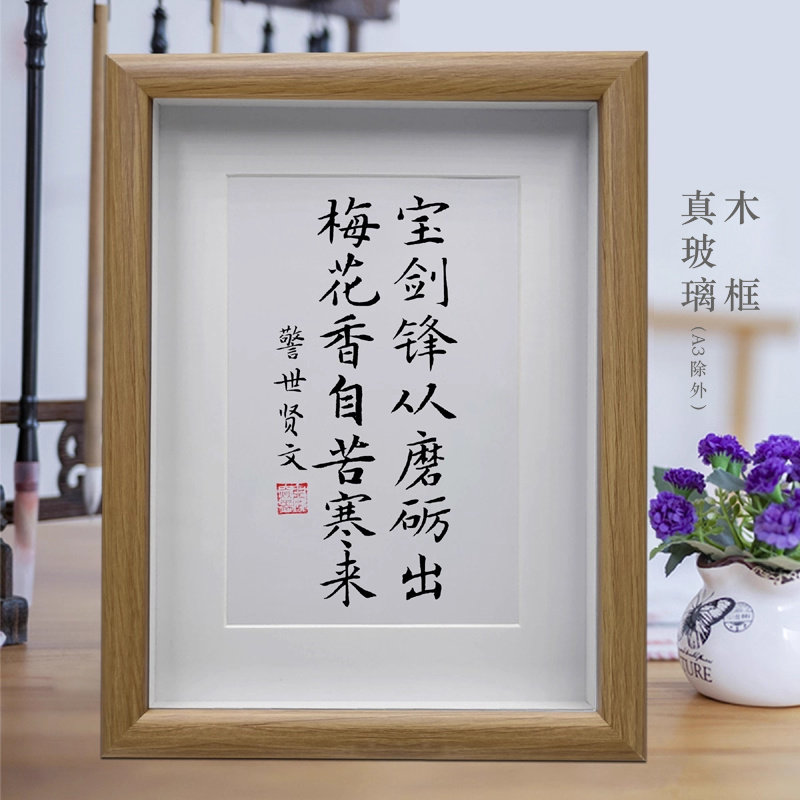 宝剑锋从磨砺出
梅花香自苦寒来
警世贤文
木框
真玻璃(A3除外)
TURE